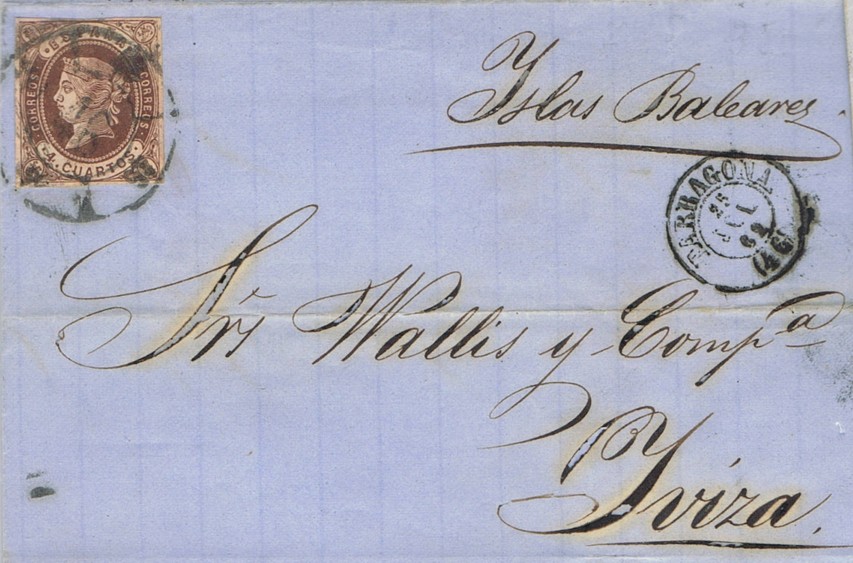 ESPAÑA
CORREOS CORREOS
4. CUARTOS.
Islas Baleares
TARRAGONA
25
JUL
62
(46)
Srs Wallis y Compª
Iviza.